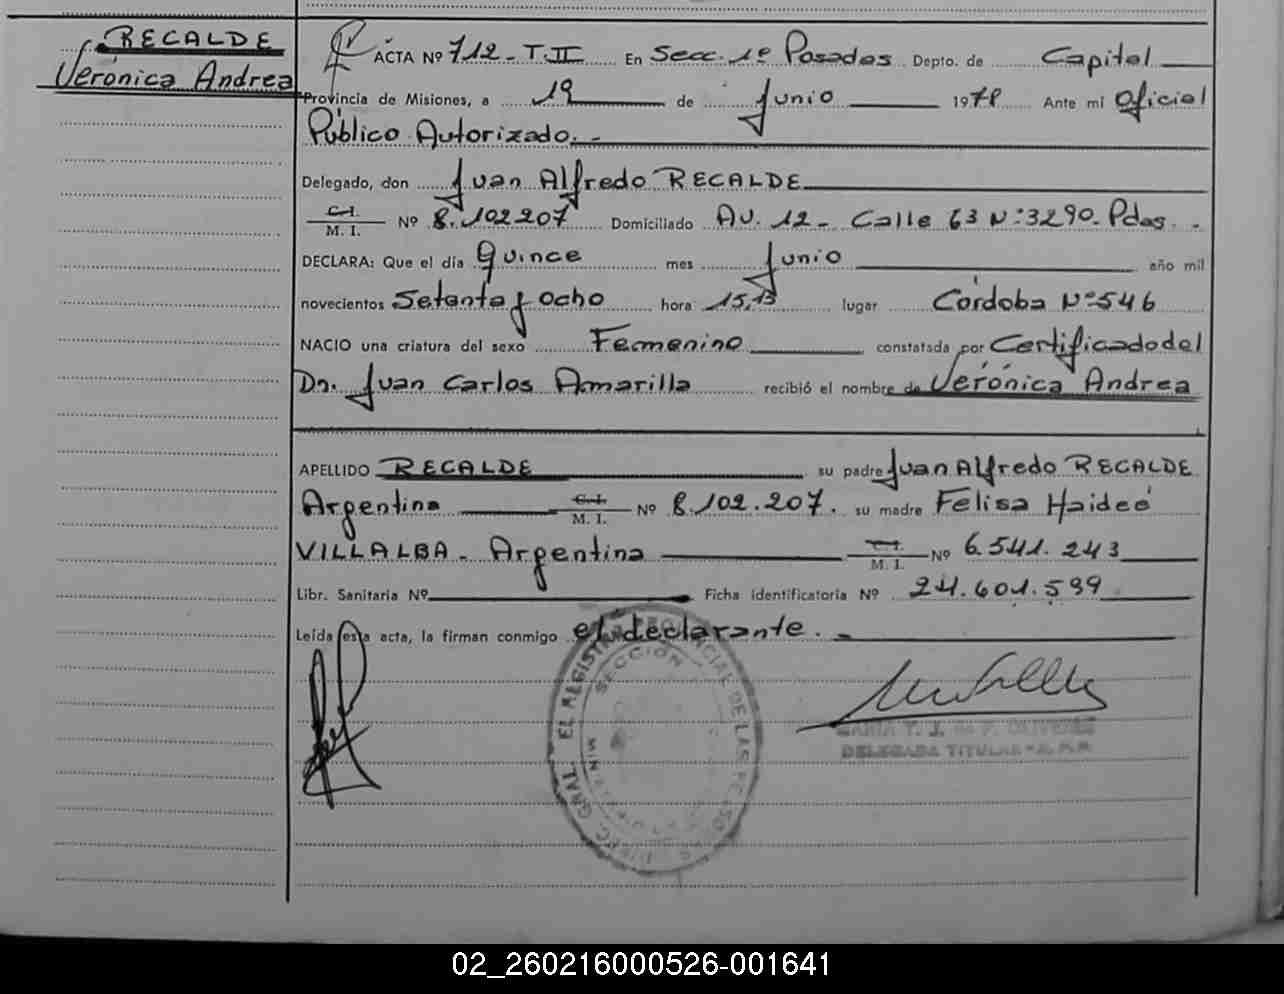 RECALDE
Verónica Andrea
ACTA Nº 712 - T.II En Secc. 1º Posadas Depto. de Capital
Provincia de Misiones, a 19 de Junio 1978 Ante mi Oficial
Público Autorizado.-
Delegado, don Juan Alfredo RECALDE
C. I.
M. I. Nº 8.102207 Domiciliado Av. 12 - Calle 63 Nº:3290- Pdas. -
DECLARA: Que el día Quince mes Junio año mil
novecientos Setenta y Ocho hora 15,13 lugar Córdoba Nº 546
NACIO una criatura del sexo Femenino constatada por Certificado del
Dn. Juan Carlos Amarilla recibió el nombre de Verónica Andrea
APELLIDO RECALDE su padre Juan Alfredo RECALDE
Argentino C. I.
M. I. Nº 8.102.207. su madre Felisa Haideé
VILLALBA - Argentina C. I.
M. I. Nº 6.541.243
Libr. Sanitaria Nº Ficha identificatoria Nº 24.601.599
Leída esta acta, la firman conmigo el declarante. -
DIREC. GRAL. EL REGISTRO PROVINCIAL DE LAS PERSONAS
SECCIÓN
MARIA T. J. de F. OLIVERES
DELEGADA TITULAR - R. P. P.
02_260216000526-001641